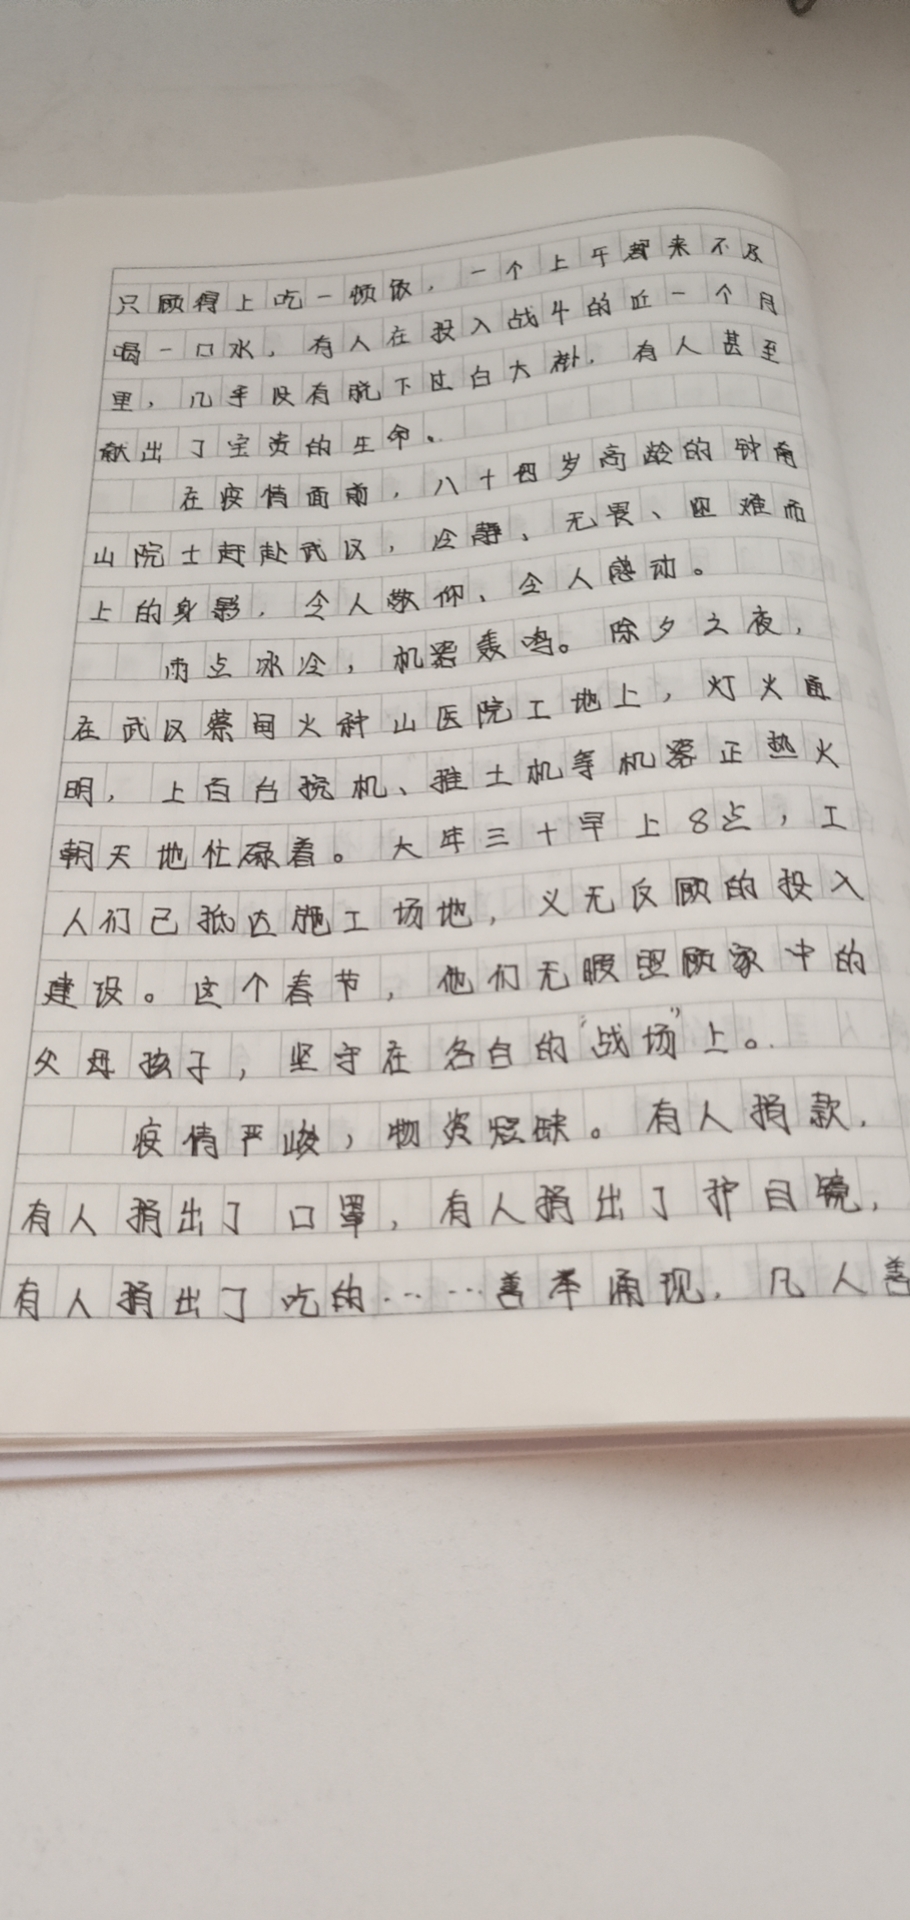 只顾得上吃一顿饭，一个上午都来不及
喝一口水，有人在投入战斗的近一个月
里，几乎没有脱下过白大褂，有人甚至
献出了宝贵的生命。
在疫情面前，八十四岁高龄的钟南
山院士赶赴武汉，冷静、无畏、迎难而
上的身影，令人敬仰、令人感动。
雨点冰冷，机器轰鸣。除夕之夜，
在武汉蔡甸火神山医院工地上，灯火通
明，上百台挖机、推土机等机器正热火
朝天地忙碌着。大年三十早上8点，工
人们已抵达施工场地，义无反顾的投入
建设。这个春节，他们无暇照顾家中的
父母孩子，坚守在各自的“战场”上。
疫情严峻，物资短缺。有人捐款，
有人捐出了口罩，有人捐出了护目镜，
有人捐出了吃的……善举涌现，凡人善